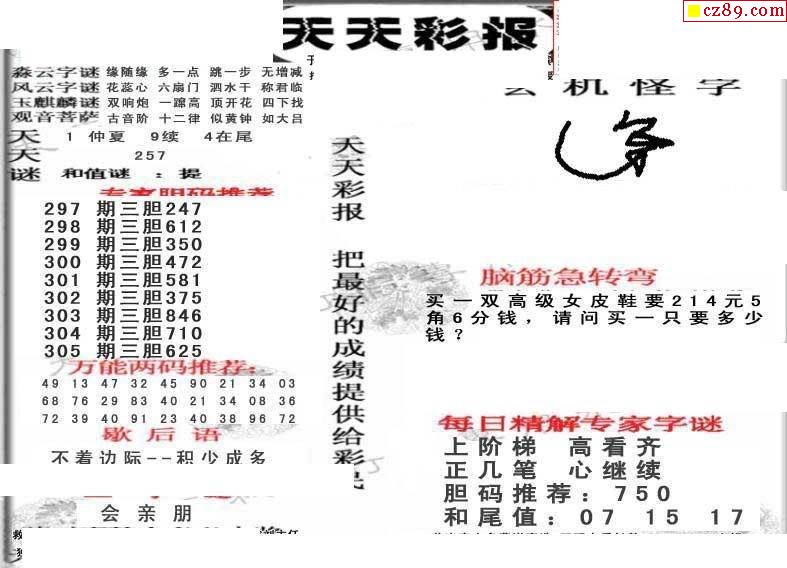 cz89.com
天天彩报
森云字谜 缘随缘 多一点 跳一步 无增减
风云字谜 花蕊心 六扇门 泗水干 称君临
玉麒麟谜 双响炮 一蹿高 顶开花 四下找
观音菩萨 古音阶 十二律 似黄钟 如大吕
天 1 仲夏 9续 4在尾
天 257
谜 和值谜 : 提
专家胆码推荐
297 期三胆247
298 期三胆612
299 期三胆350
300 期三胆472
301 期三胆581
302 期三胆375
303 期三胆846
304 期三胆710
305 期三胆625
万能两码推荐:
49 13 47 32 45 90 21 34 03
68 76 29 83 40 21 34 08 36
72 39 40 91 23 40 38 96 72
歇后语
不着边际--积少成多
会亲朋
天天彩报 把最好的成绩提供给彩民
玄机怪字
脑筋急转弯
买一双高级女皮鞋要214元5
角6分钱，请问买一只要多少
钱？
每日精解专家字谜
上阶梯 高看齐
正几笔 心继续
胆码推荐: 750
和尾值: 07 15 17